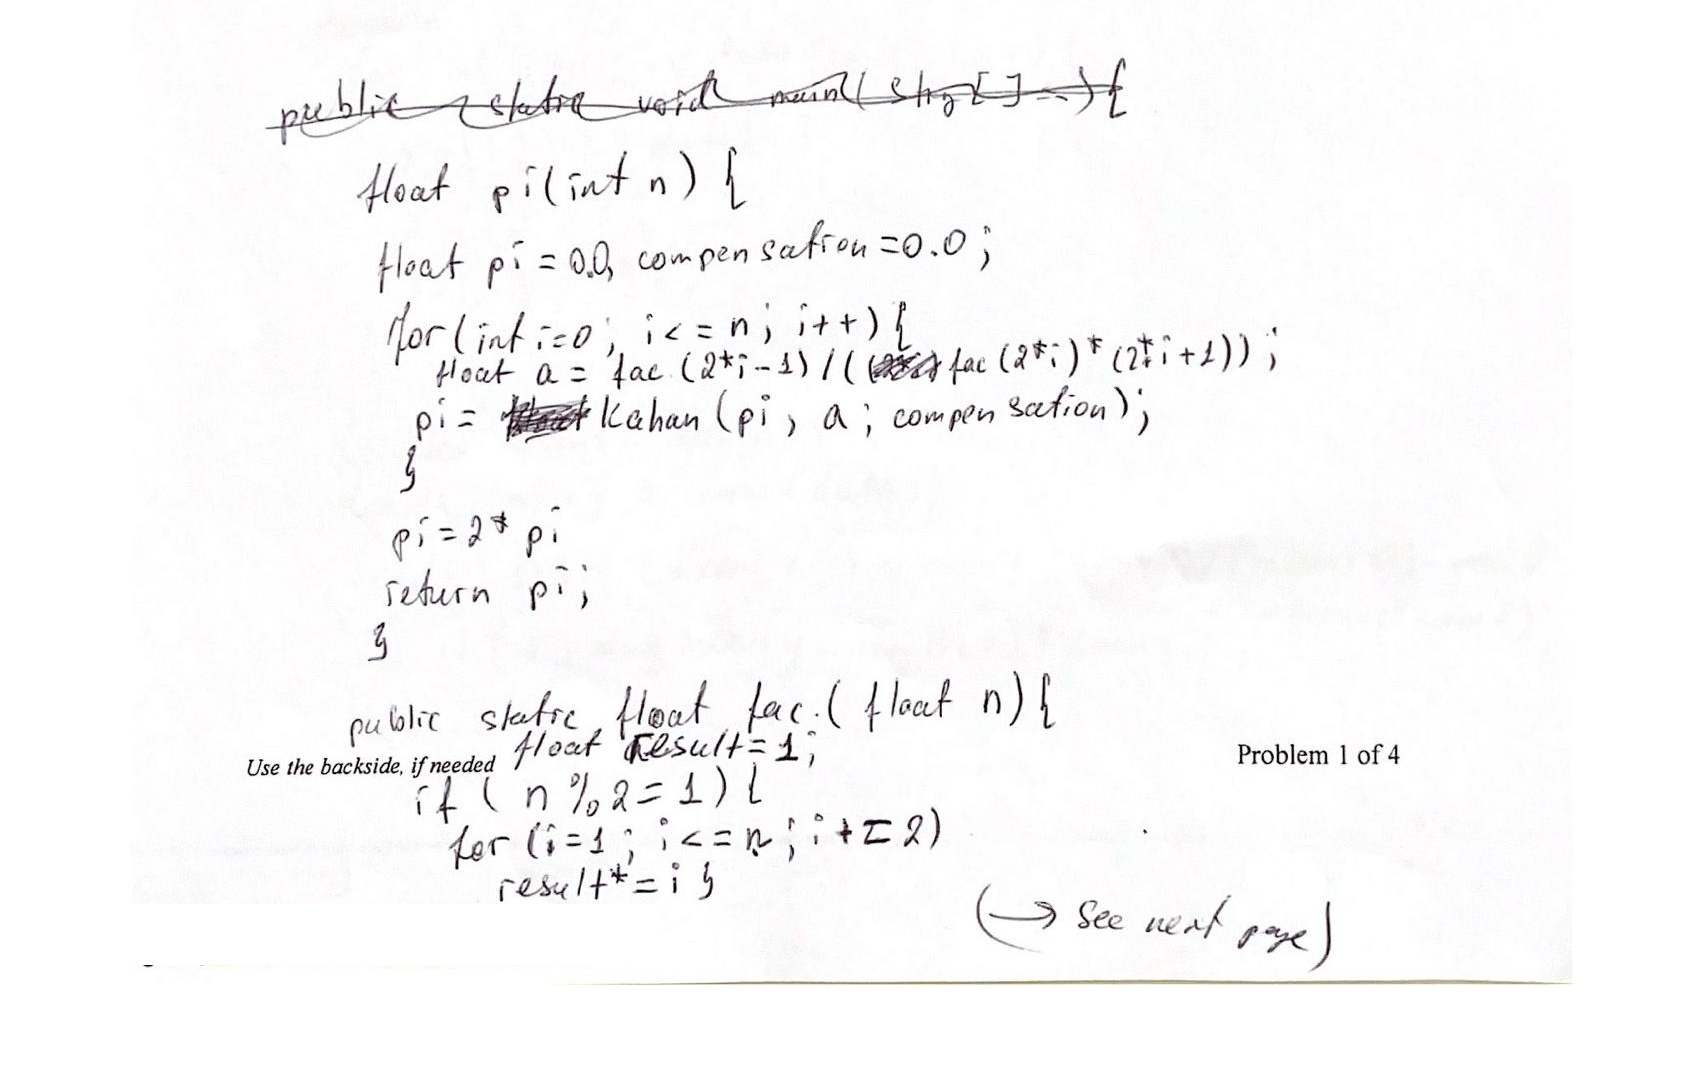 public static void main(Strg[]--){
float pi(int n) {
float pi = 0.0, compensation = 0.0;
for(int i=0; i<=n; i++){
float a = fac.(2*i-1)/((fac(2*i)*(2*i+1));
pi = Kahan(pi, a; compensation);
}
pi=2* pi
return pi;
}
public static float fac.(float n){
float result=1;
Use the backside, if needed
Problem 1 of 4
if (n%2=1){
for(i=1; i<=n; i+=2)
result*=i }
(→ see next page)